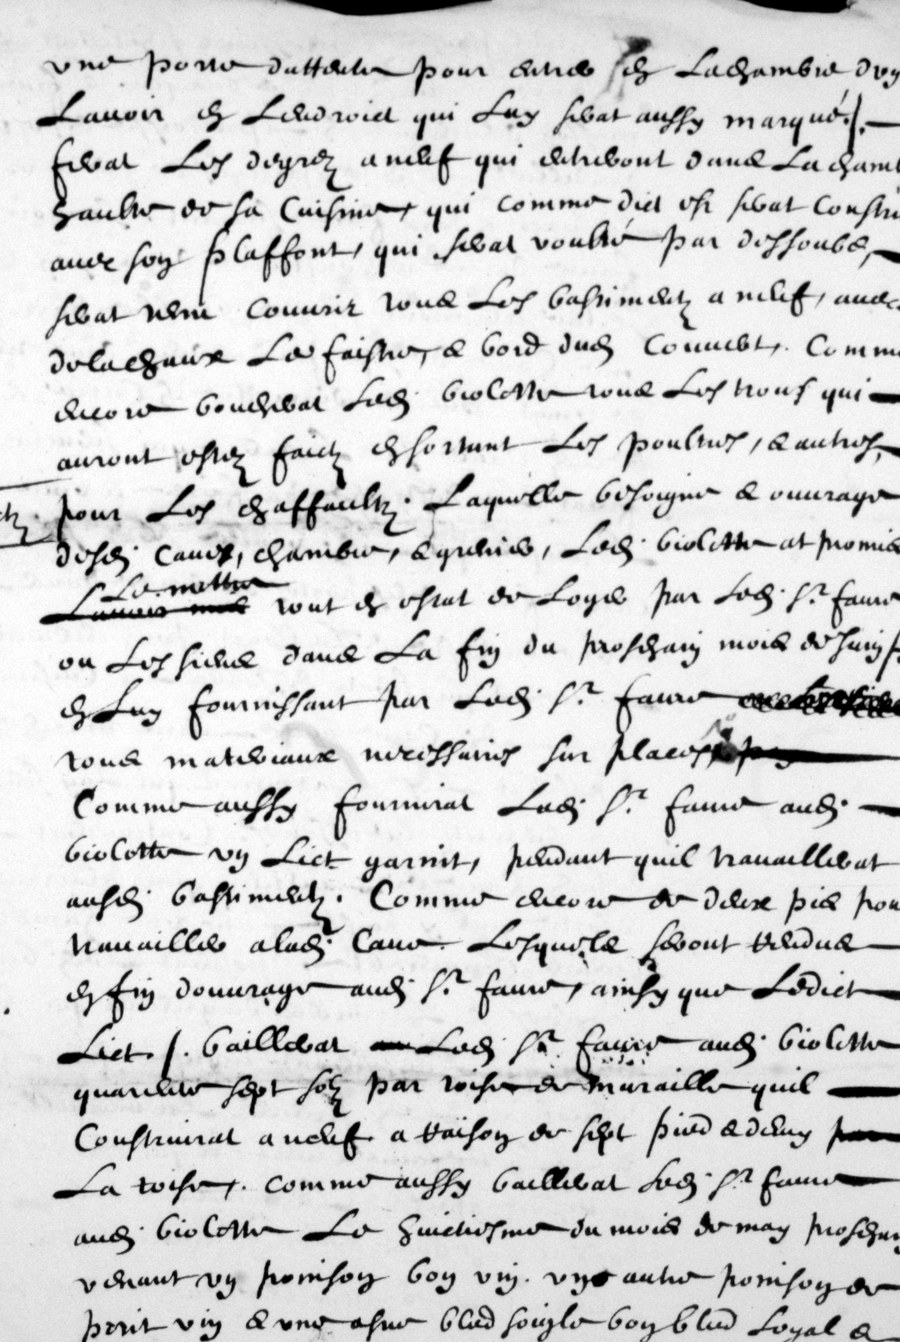 une porte dattente pour entrer en La chambre dun
Lavoir en Lendroict qui Luy serat aussy marqué /. —
ferat Les degrez a neuf qui entreront dans La chamb
haulte de sa Cuisine, qui comme dict est serat Constru
avec son plaffont, qui serat voulté par dessoubs,
serat tenu Couvrir tous Les bastimentz a neuf, avec
de la chaux Le faistre, & bord dud. Couvert. Comme
encore boucherat Led. biolette tous Les trous qui
auront estez faictz en sortant Les poultres, & autres
pour Les chaffaultz. Laquelle besoigne & ouvrage
desd. Caves, chambre, & grenier, Led. biolette at promis
Le mettre
tout en estat de Loger par Led. Sr. faure
ou Les siens dans La fin du proschain mois de Juin /
en Luy fournissant par Led. Sr. faure
tous materiaux necessaires sur place,
Comme aussy fournirat Led. Sr. faure aud.
biolette un Lict garnit, pendant quil travaillerat
ausd. bastimentz. Comme encore de deux pis pou
travailler a lad. Cave. Lesquels seront rendus
en fin douvrage aud. Sr. faure, ainsy que Ledict
Lict. /. baillerat Led. Sr. faure aud. biolette
quarente sept solz par toise de muraille quil
Construirat a neuf a raison de sept pied & demy
La toise. comme aussy baillerat Led. Sr. faure
aud. biolette Le huictiesme du mois de may proschain
venant un poinson bon vin. un autre poinson de
petit vin & une asne bled soigle bon bled Loyal &